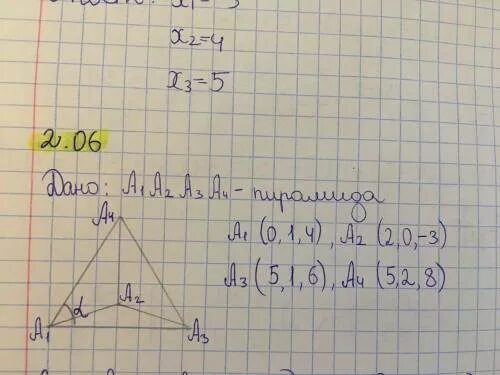 x₂=4
x₃=5
2.06
Дано: A₁ A₂ A₃ A₄ - пирамида
A₄
A₁ (0,1,4), A₂ (2,0,-3)
A₃ (5,1,6), A₄ (5,2,8)
α A₂
A₁ A₃